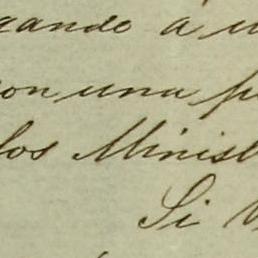 gando á u
on una p
los Minist
Si V